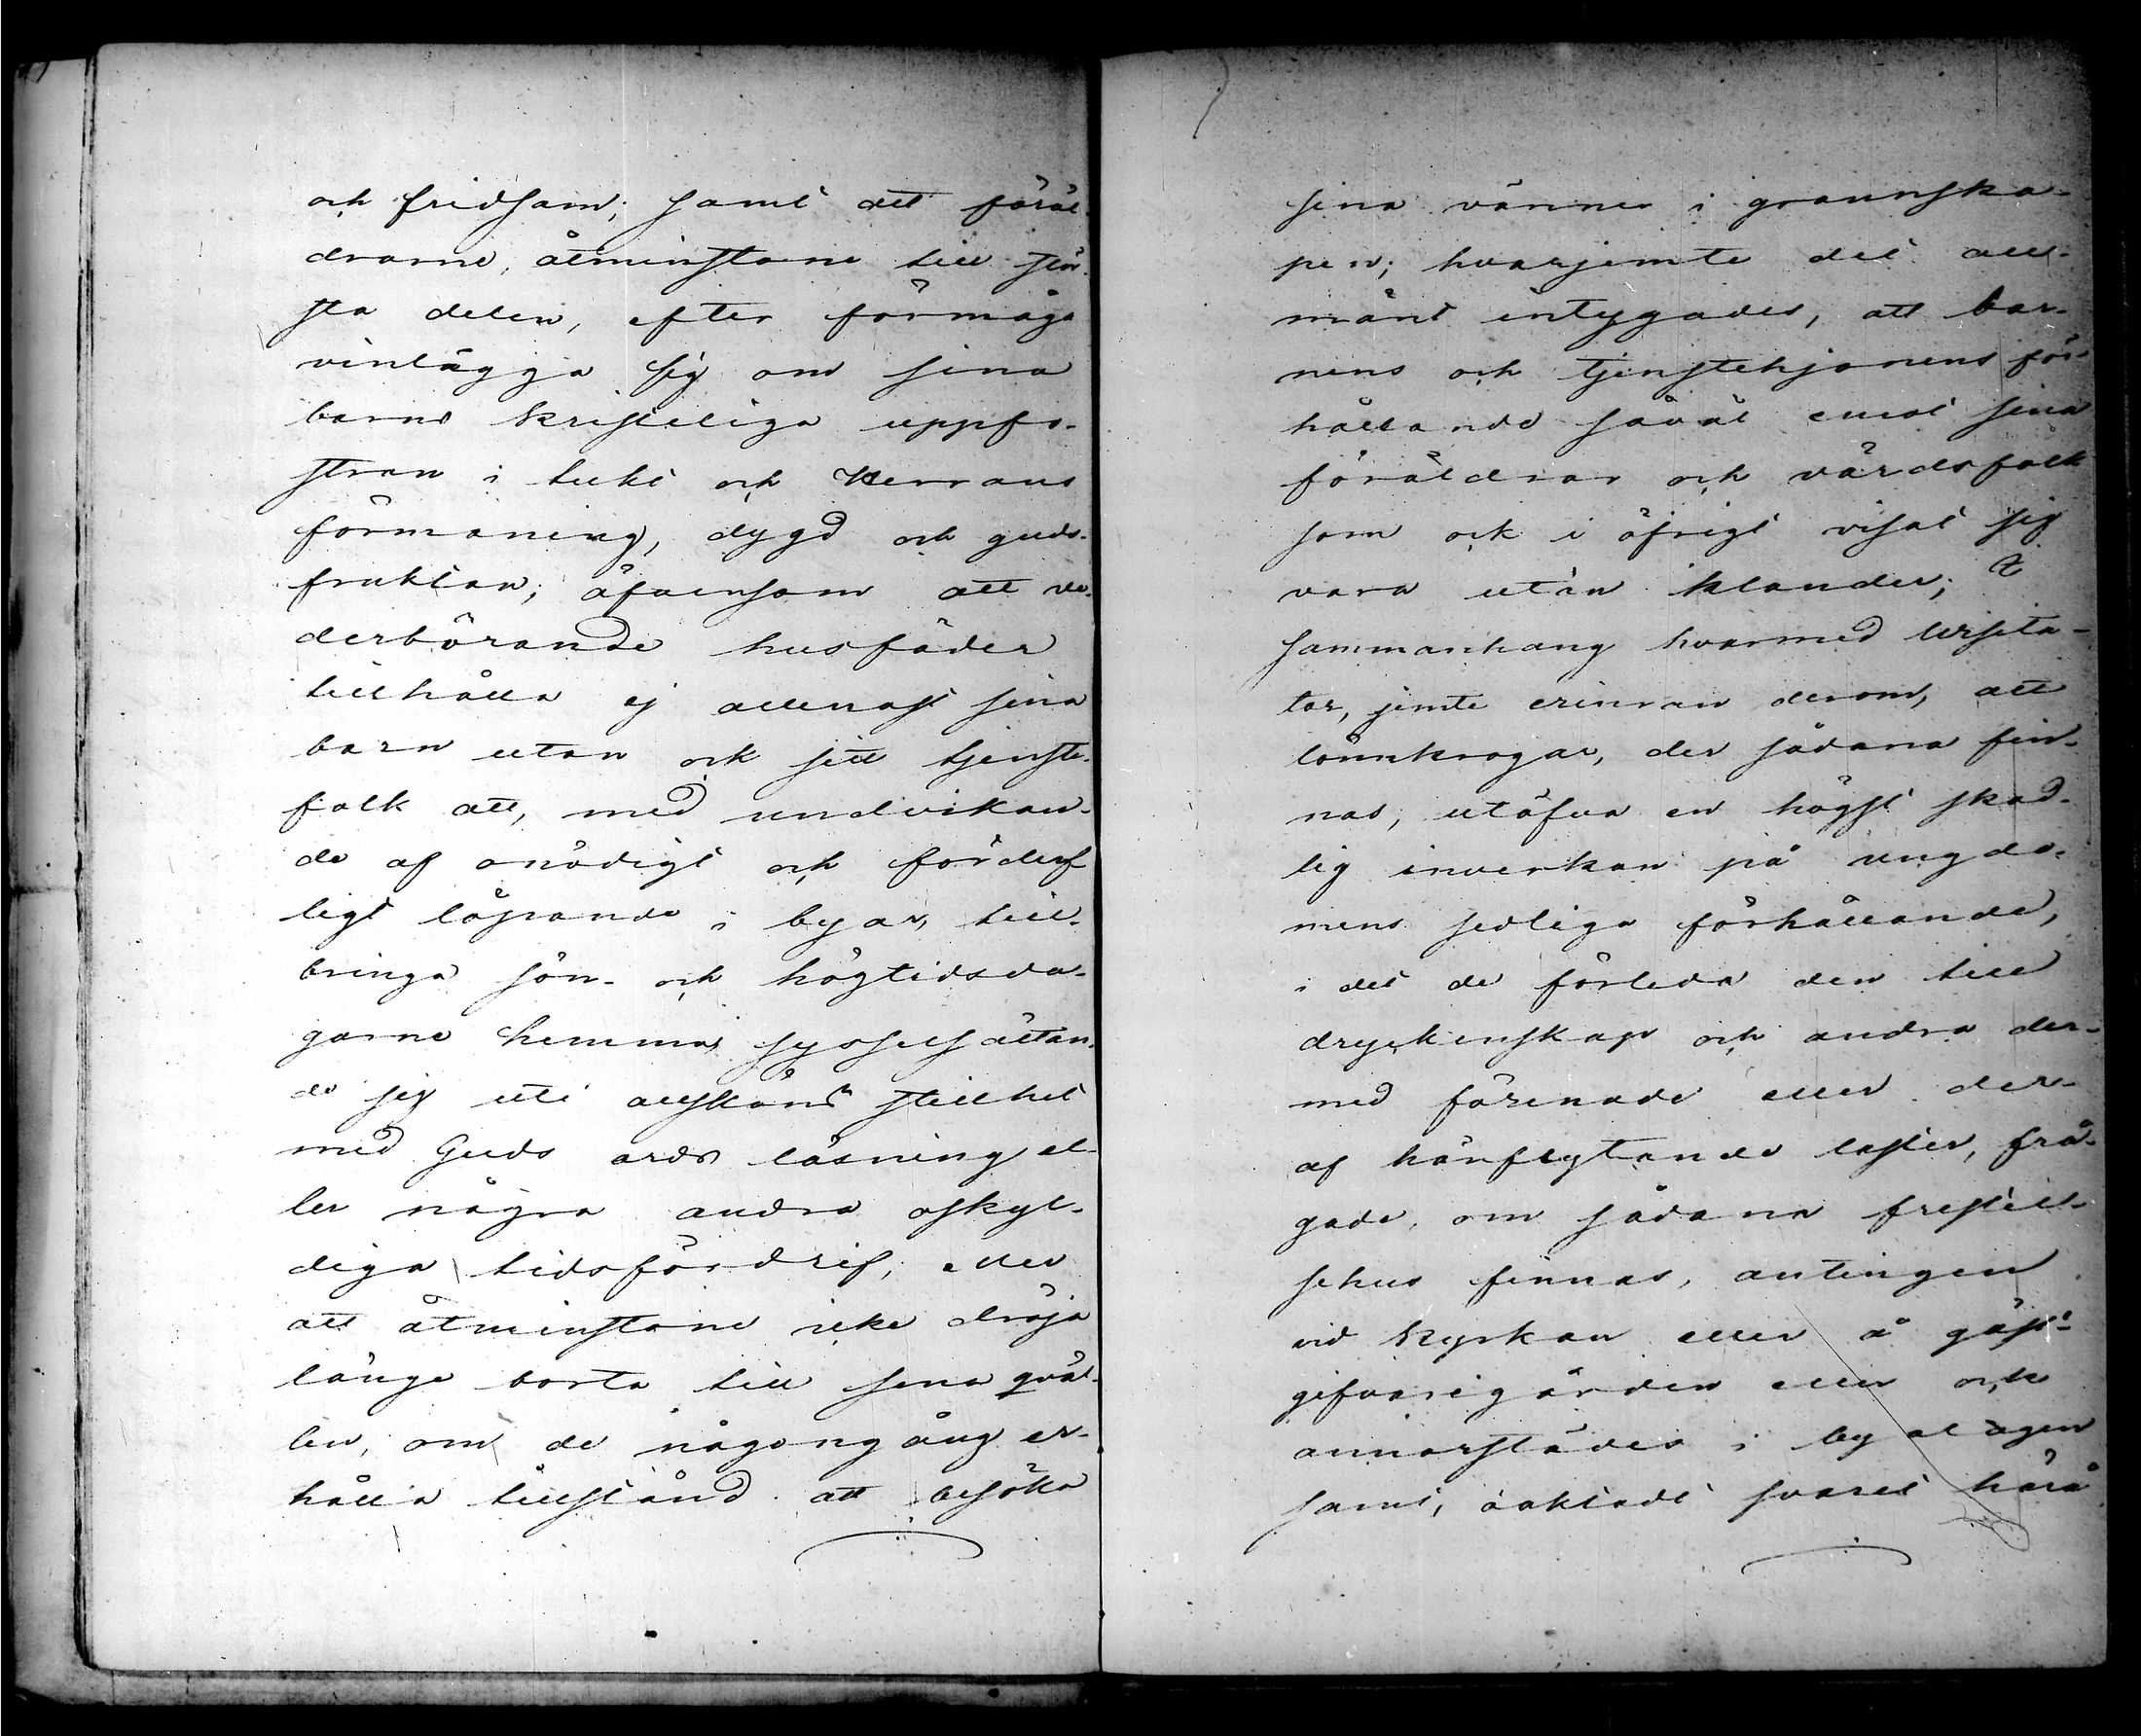 och fridsam; samt att föräl-
drarne, åtminstone till stör-
sta delen, efter förmåga
vinlägga sig om sina
barns kristeliga uppfo-
stran i tukt och Herrans
förmaning, dygd och guds-
fruktan; äfvensom att ve-
derbörande husfäder
tillhålla ej allenast sina
barn utan ock sitt tjenste-
folk att, med undvikan-
de af onödigt och förderf
ligt löpande i byar, till-
bringa sön- och högtidsda-
garne hemma, sysselsättan-
de sig uti allskön stillhet
med Guds ords läsning el-
ler några andra oskyl-
diga tidsfördrif, eller
att åtminstone icke dröja
länge borta till sena qväl-
len, om de någongång er-
hålla tillstånd att besöka
sina vänner i grannska-
pen; hvarjemte det all-
mänt intygades, att bar-
nens och tjenstehjonens för-
hållande såväl emot sina
föräldrar och värdsfolk
som ock i öfrigt visat sig
vara utan klander; I
sammanhang hvarmed Visita-
tor, jemte erinran derom, att
lönnkrogar, der sådana fin-
nas, utöfva en högst skad-
lig inverkan på ungdo-
mens sedliga förhållande,
i det de förleda den till
dryckenskap och andra der-
med förenade eller der-
af härflytande laster, frå-
gade, om sådana frestel-
sehus finnas, antingen
vid kyrkan eller å gäst-
gifvaregården eller ock
annorstädes i byalagen
samt, åaktadt svaret härå